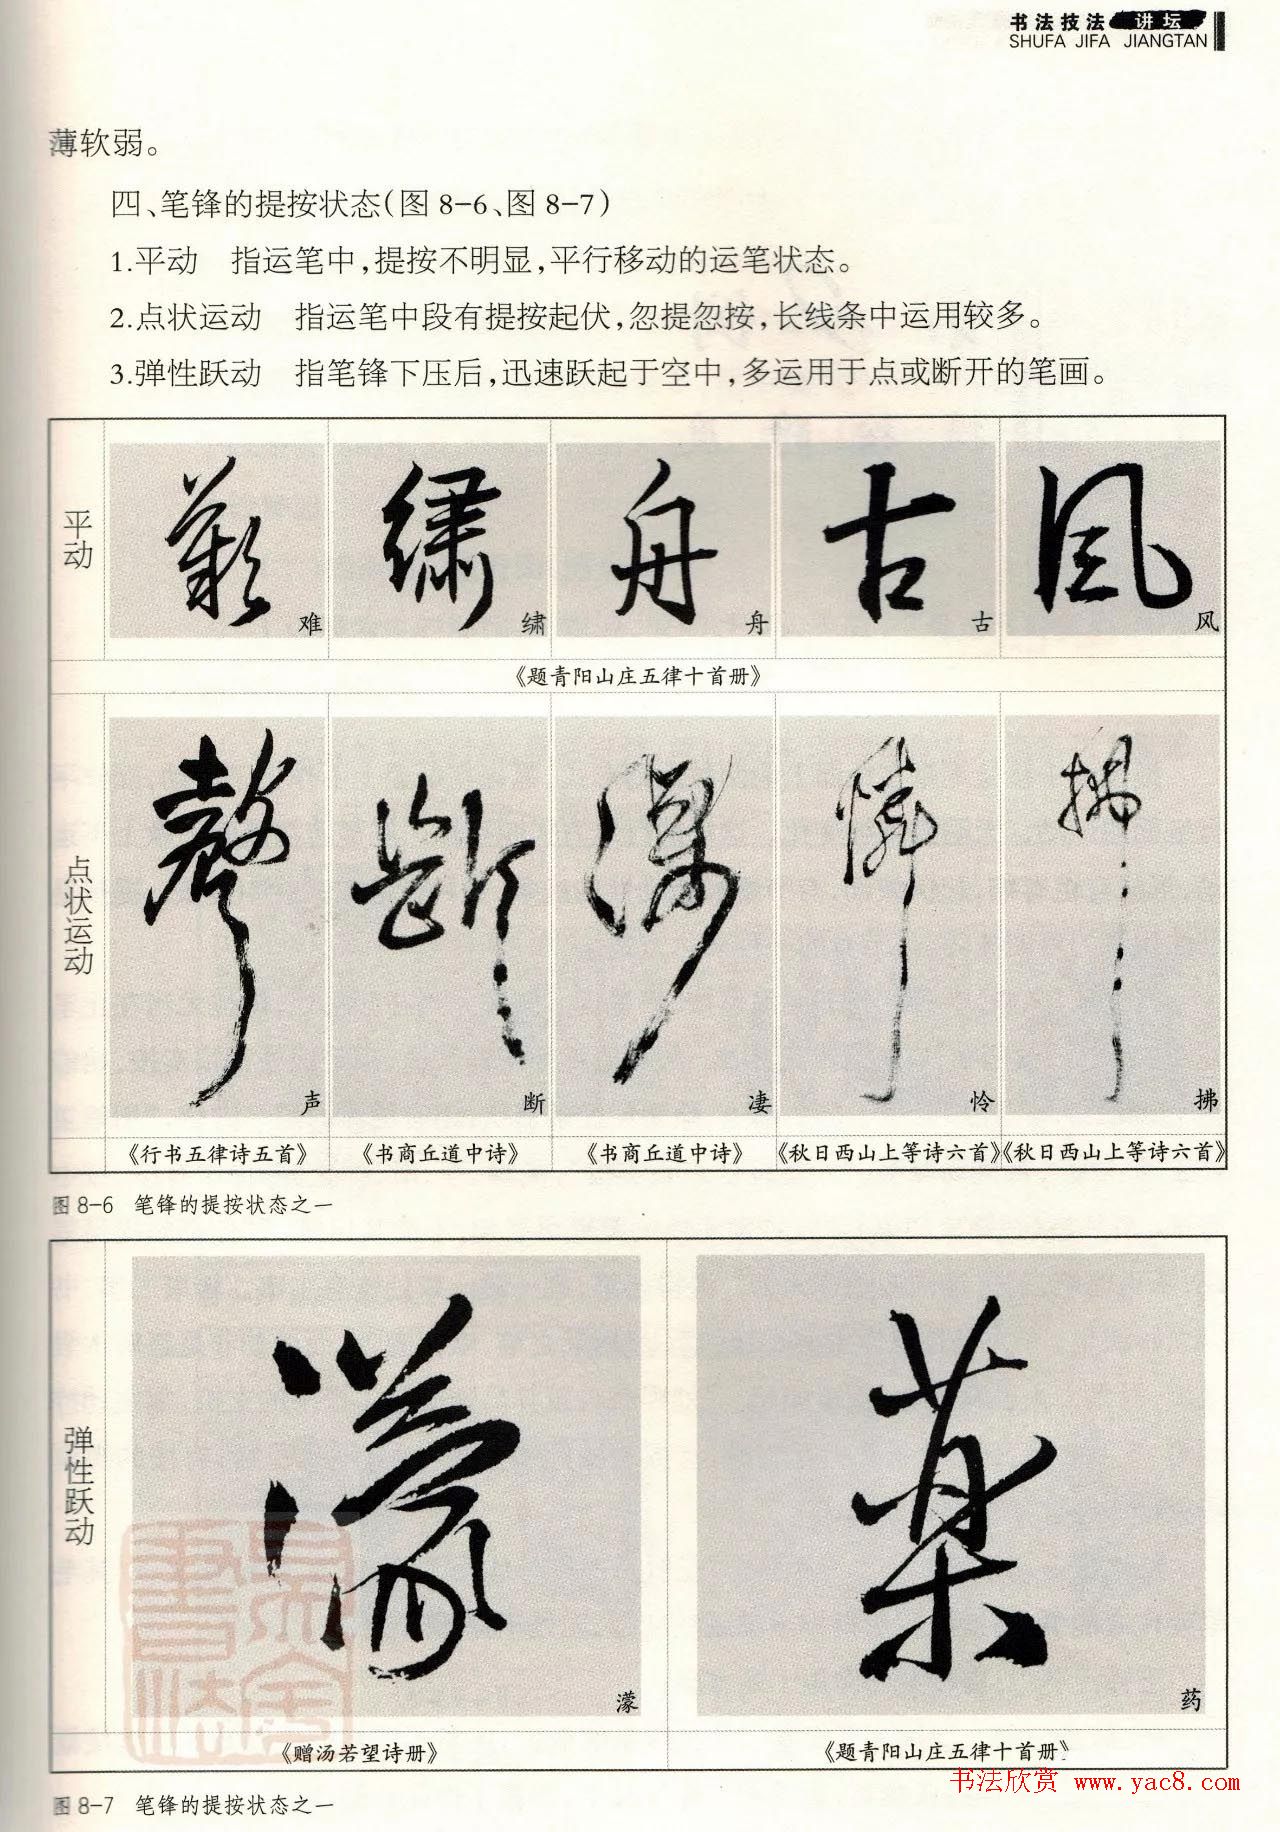 书法技法 讲坛
SHUFA JIFA JIANGTAN
薄软弱。
四、笔锋的提按状态(图 8-6、图 8-7)
1.平动　指运笔中,提按不明显,平行移动的运笔状态。
2.点状运动　指运笔中段有提按起伏,忽提忽按,长线条中运用较多。
3.弹性跃动　指笔锋下压后,迅速跃起于空中,多运用于点或断开的笔画。
平动
难 绣 舟 古 风
《题青阳山庄五律十首册》
点状运动
声 断 凄 怜 拂
《行书五律诗五首》 《书商丘道中诗》 《书商丘道中诗》 《秋日西山上等诗六首》 《秋日西山上等诗六首》
图 8-6 笔锋的提按状态之一
弹性跃动
濛 药
《赠汤若望诗册》 《题青阳山庄五律十首册》
书法欣赏 www.yac8.com
图 8-7 笔锋的提按状态之一